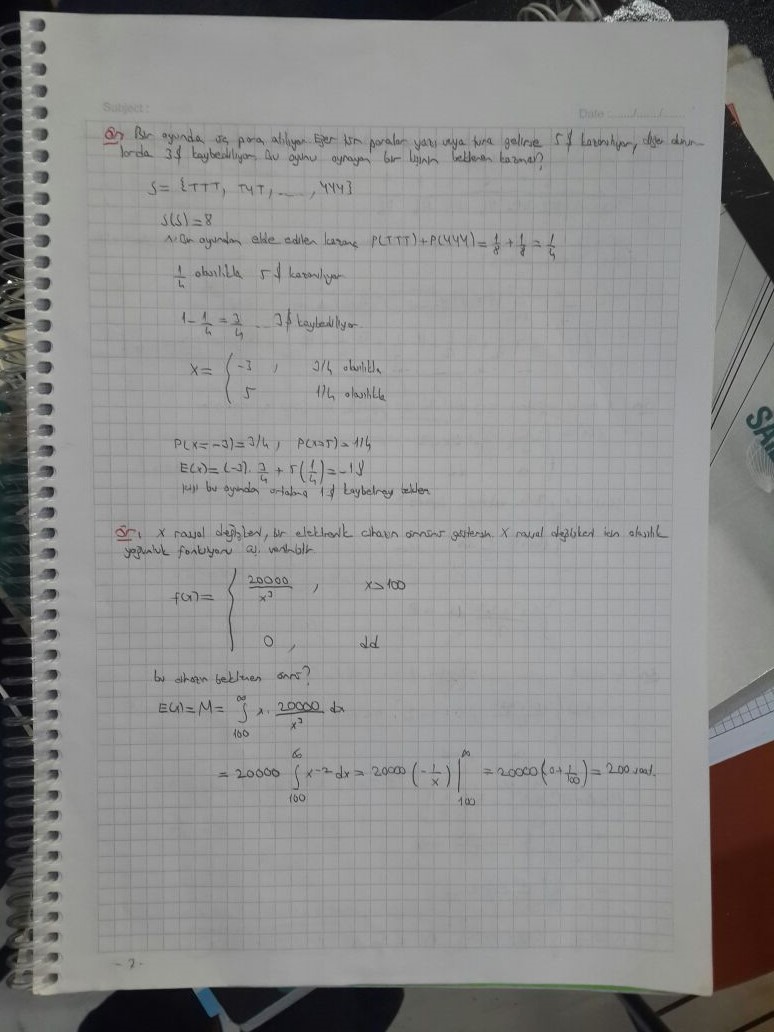 Subject:
Date: ..../..../....
Ör, Bir oyunda üç para atılıyor. Eğer tüm paralar yazı veya tura gelirse 5 $ kazanılıyor, diğer durum-
larda 3 $ kaybediliyor. Bu oyunu oynayan bir kişinin beklenen kazancı?
S = {TTT, TYT, ..., YYY}
S(S) = 8
oyundan elde edilen kazanç P(TTT) + P(YYY) = 1/8 + 1/8 = 1/4
1/4 olasılıkla 5 $ kazanılıyor
1 - 1/4 = 3/4 .. 3 $ kaybediliyor.
X = { -3 , 3/4 olasılıkla
5 1/4 olasılıkla
P(X = -3) = 3/4 , P(X=5) = 1/4
E(X) = (-3) . 3/4 + 5 (1/4) = -1 $
kişi bu oyunda ortalama 1 $ kaybetmeyi bekler
Ör, X rassal değişkeni, bir elektronik cihazın ömrünü göstersin. X rassal değişkeni için olasılık
yoğunluk fonksiyonu aş. verilmiştir.
f(x) = { 20000/x³ , x > 100
0 , dd
bu cihazın beklenen ömrü?
E(x) = M = ∫₁₀₀^∞ x . 20000/x³ dx
= 20000 ∫₁₀₀^∞ x⁻² dx = 20000 (-1/x) |₁₀₀^∞ = 20000 (0 + 1/100) = 200 saat.
- 2 -
SA